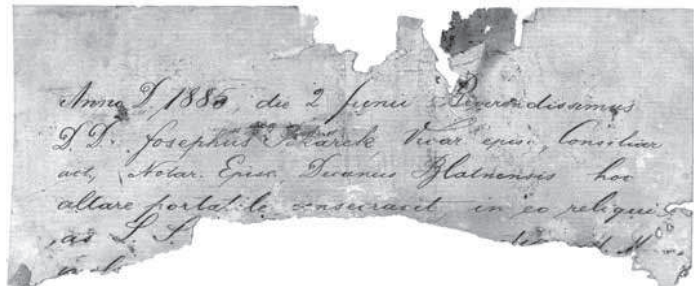 Anno D. 1885, die 2 Junii Reverendissimus
D. D. Josephus Vicar. episc, Consiliar
act, Notar. Episc. Decanus Blatnensis hoc
altare portatile consecravit, in eo reliqui
as S. S.